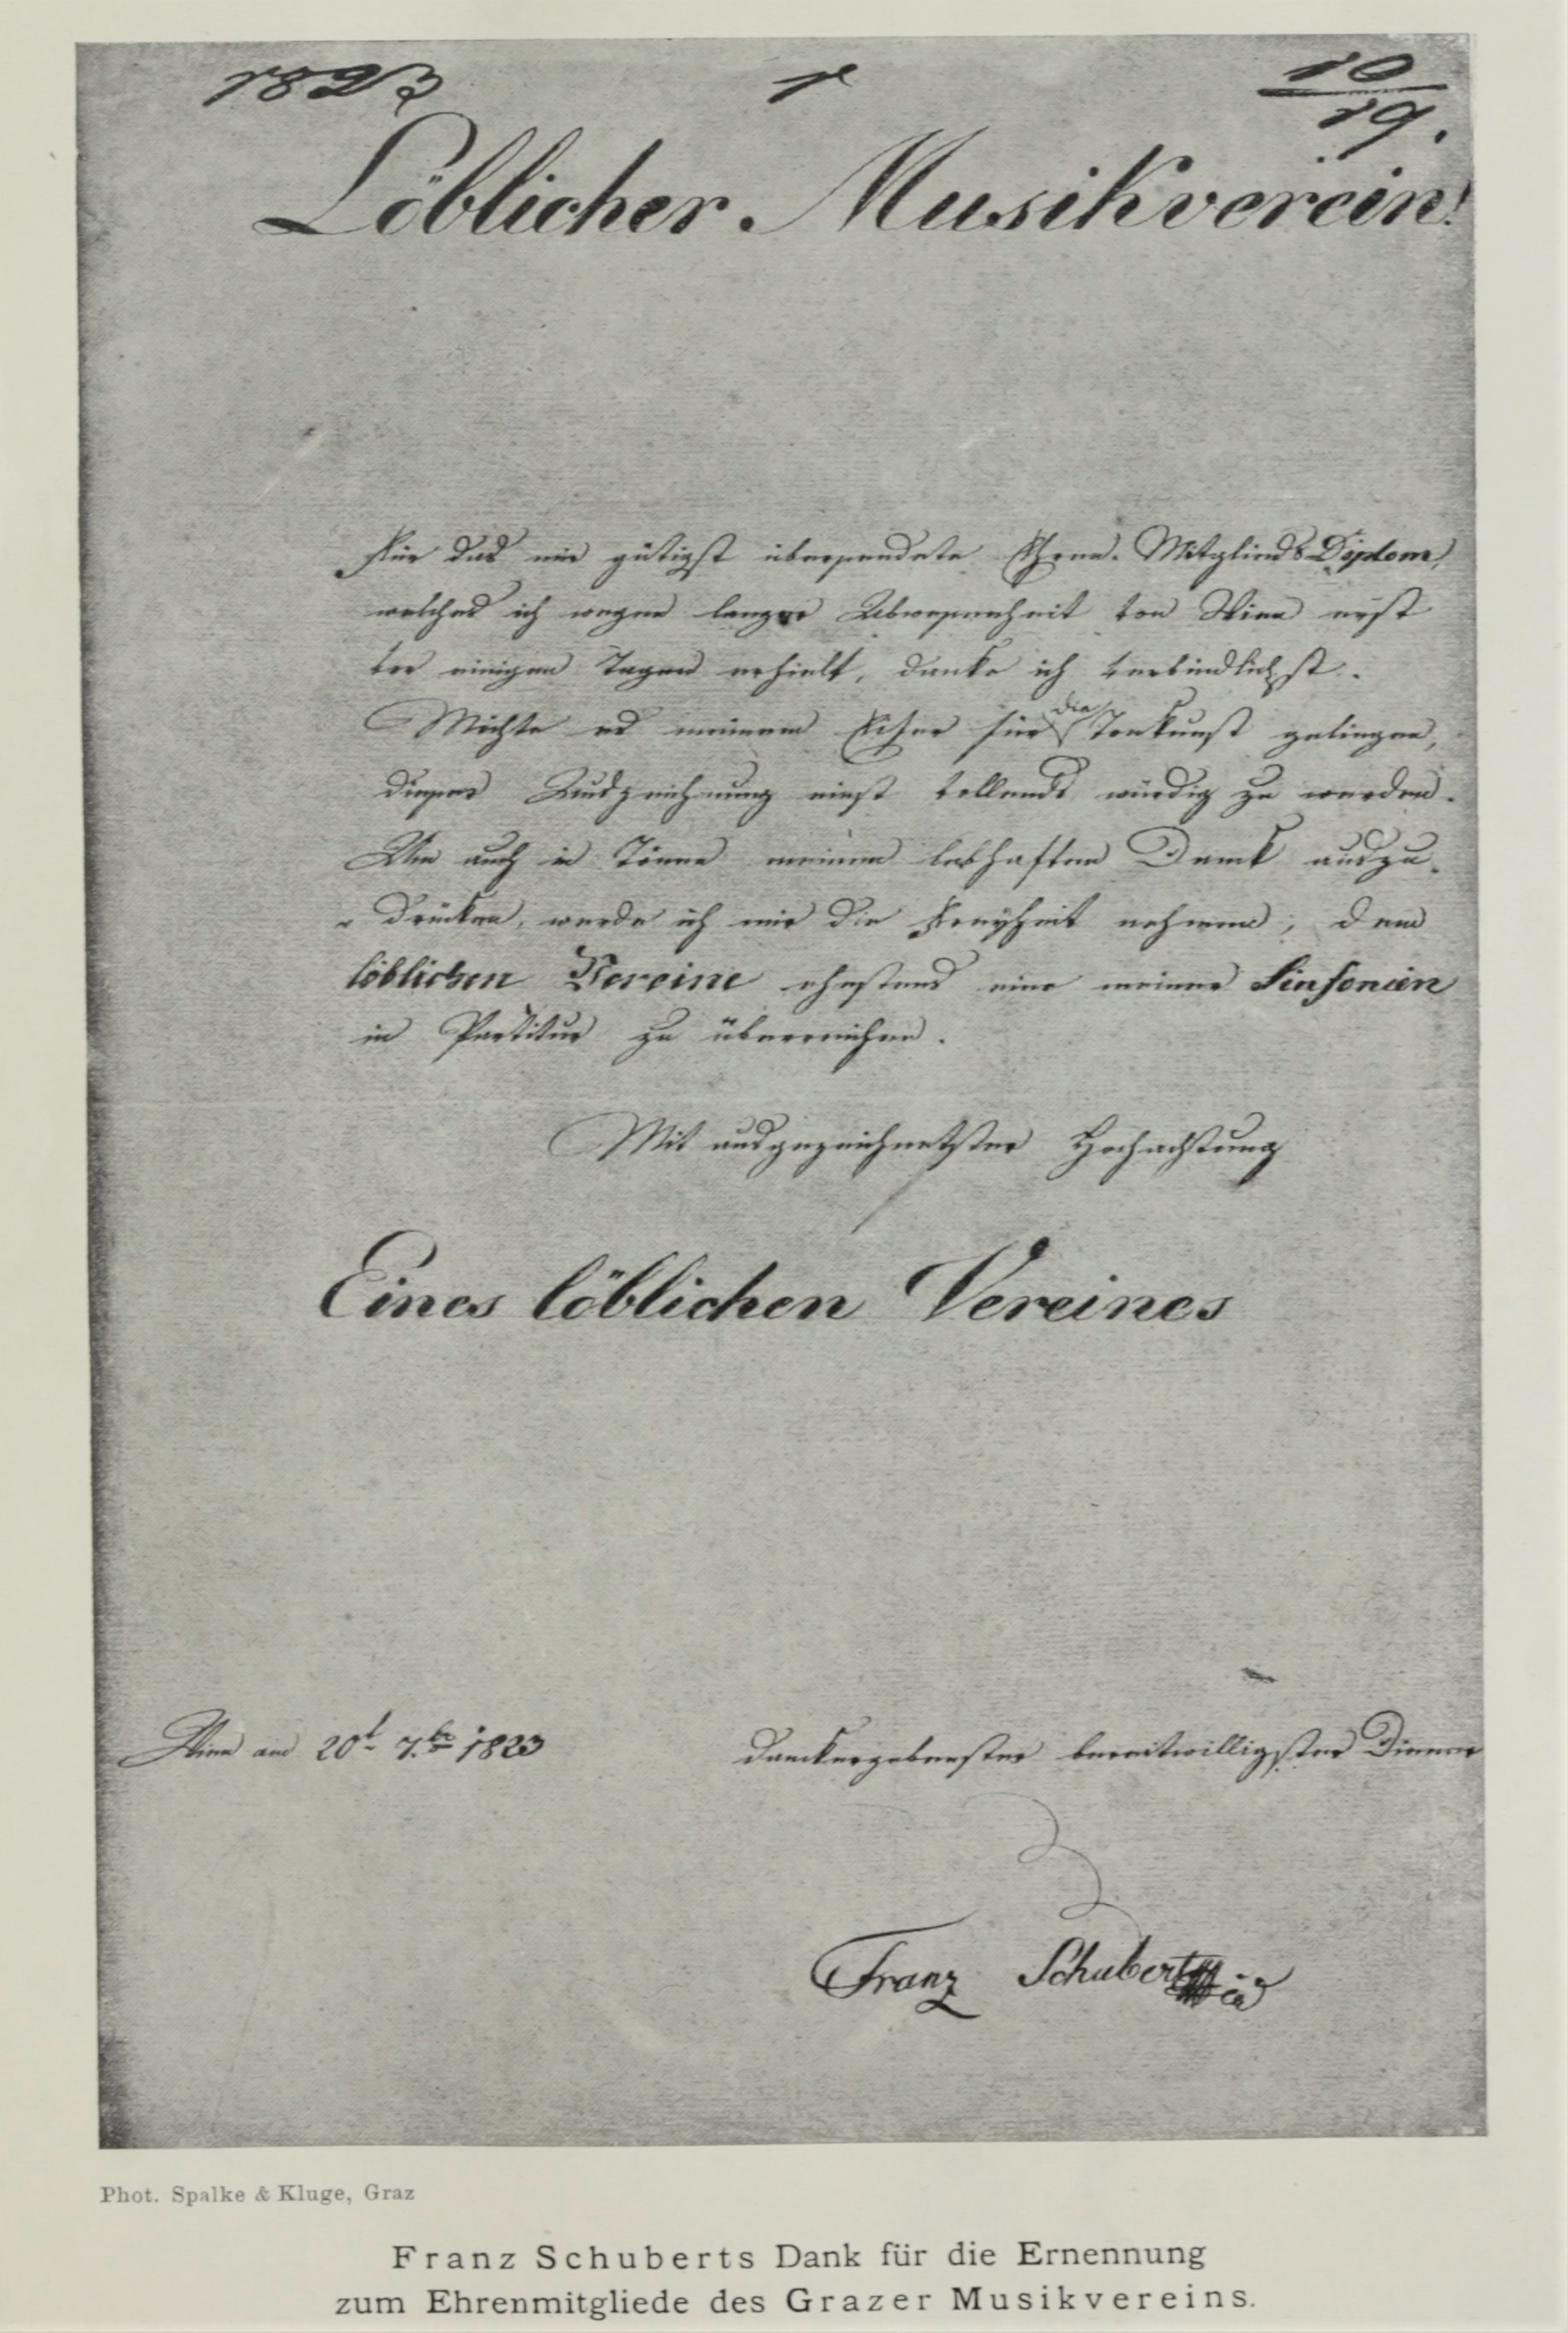 1823 1 10/19.
Löblicher Musikverein!
Für das mir gütigst übersendete Ehren-Mitglieds Diplom,
welches ich wegen langer Abwesenheit von Wien erst
vor einigen Tagen erhielt, danke ich verbindlichst.
Möchte es meinem Eifer für die Tonkunst gelingen,
dieser Auszeichnung einst vollends würdig zu werden.
Um auch in Tönen meinen lebhaften Dank auszu-
drücken, werde ich mir die Freyheit nehmen, dem
löblichen Vereine ehestens eine meiner Sinfonien
in Partitur zu überreichen.
Mit ausgezeichnetster Hochachtung
Eines löblichen Vereines
Wien am 20t. 7.br 1823
danckergebenster bereitwilligster Diener
Franz Schubert
Phot. Spalke & Kluge, Graz
Franz Schuberts Dank für die Ernennung
zum Ehrenmitgliede des Grazer Musikvereins.